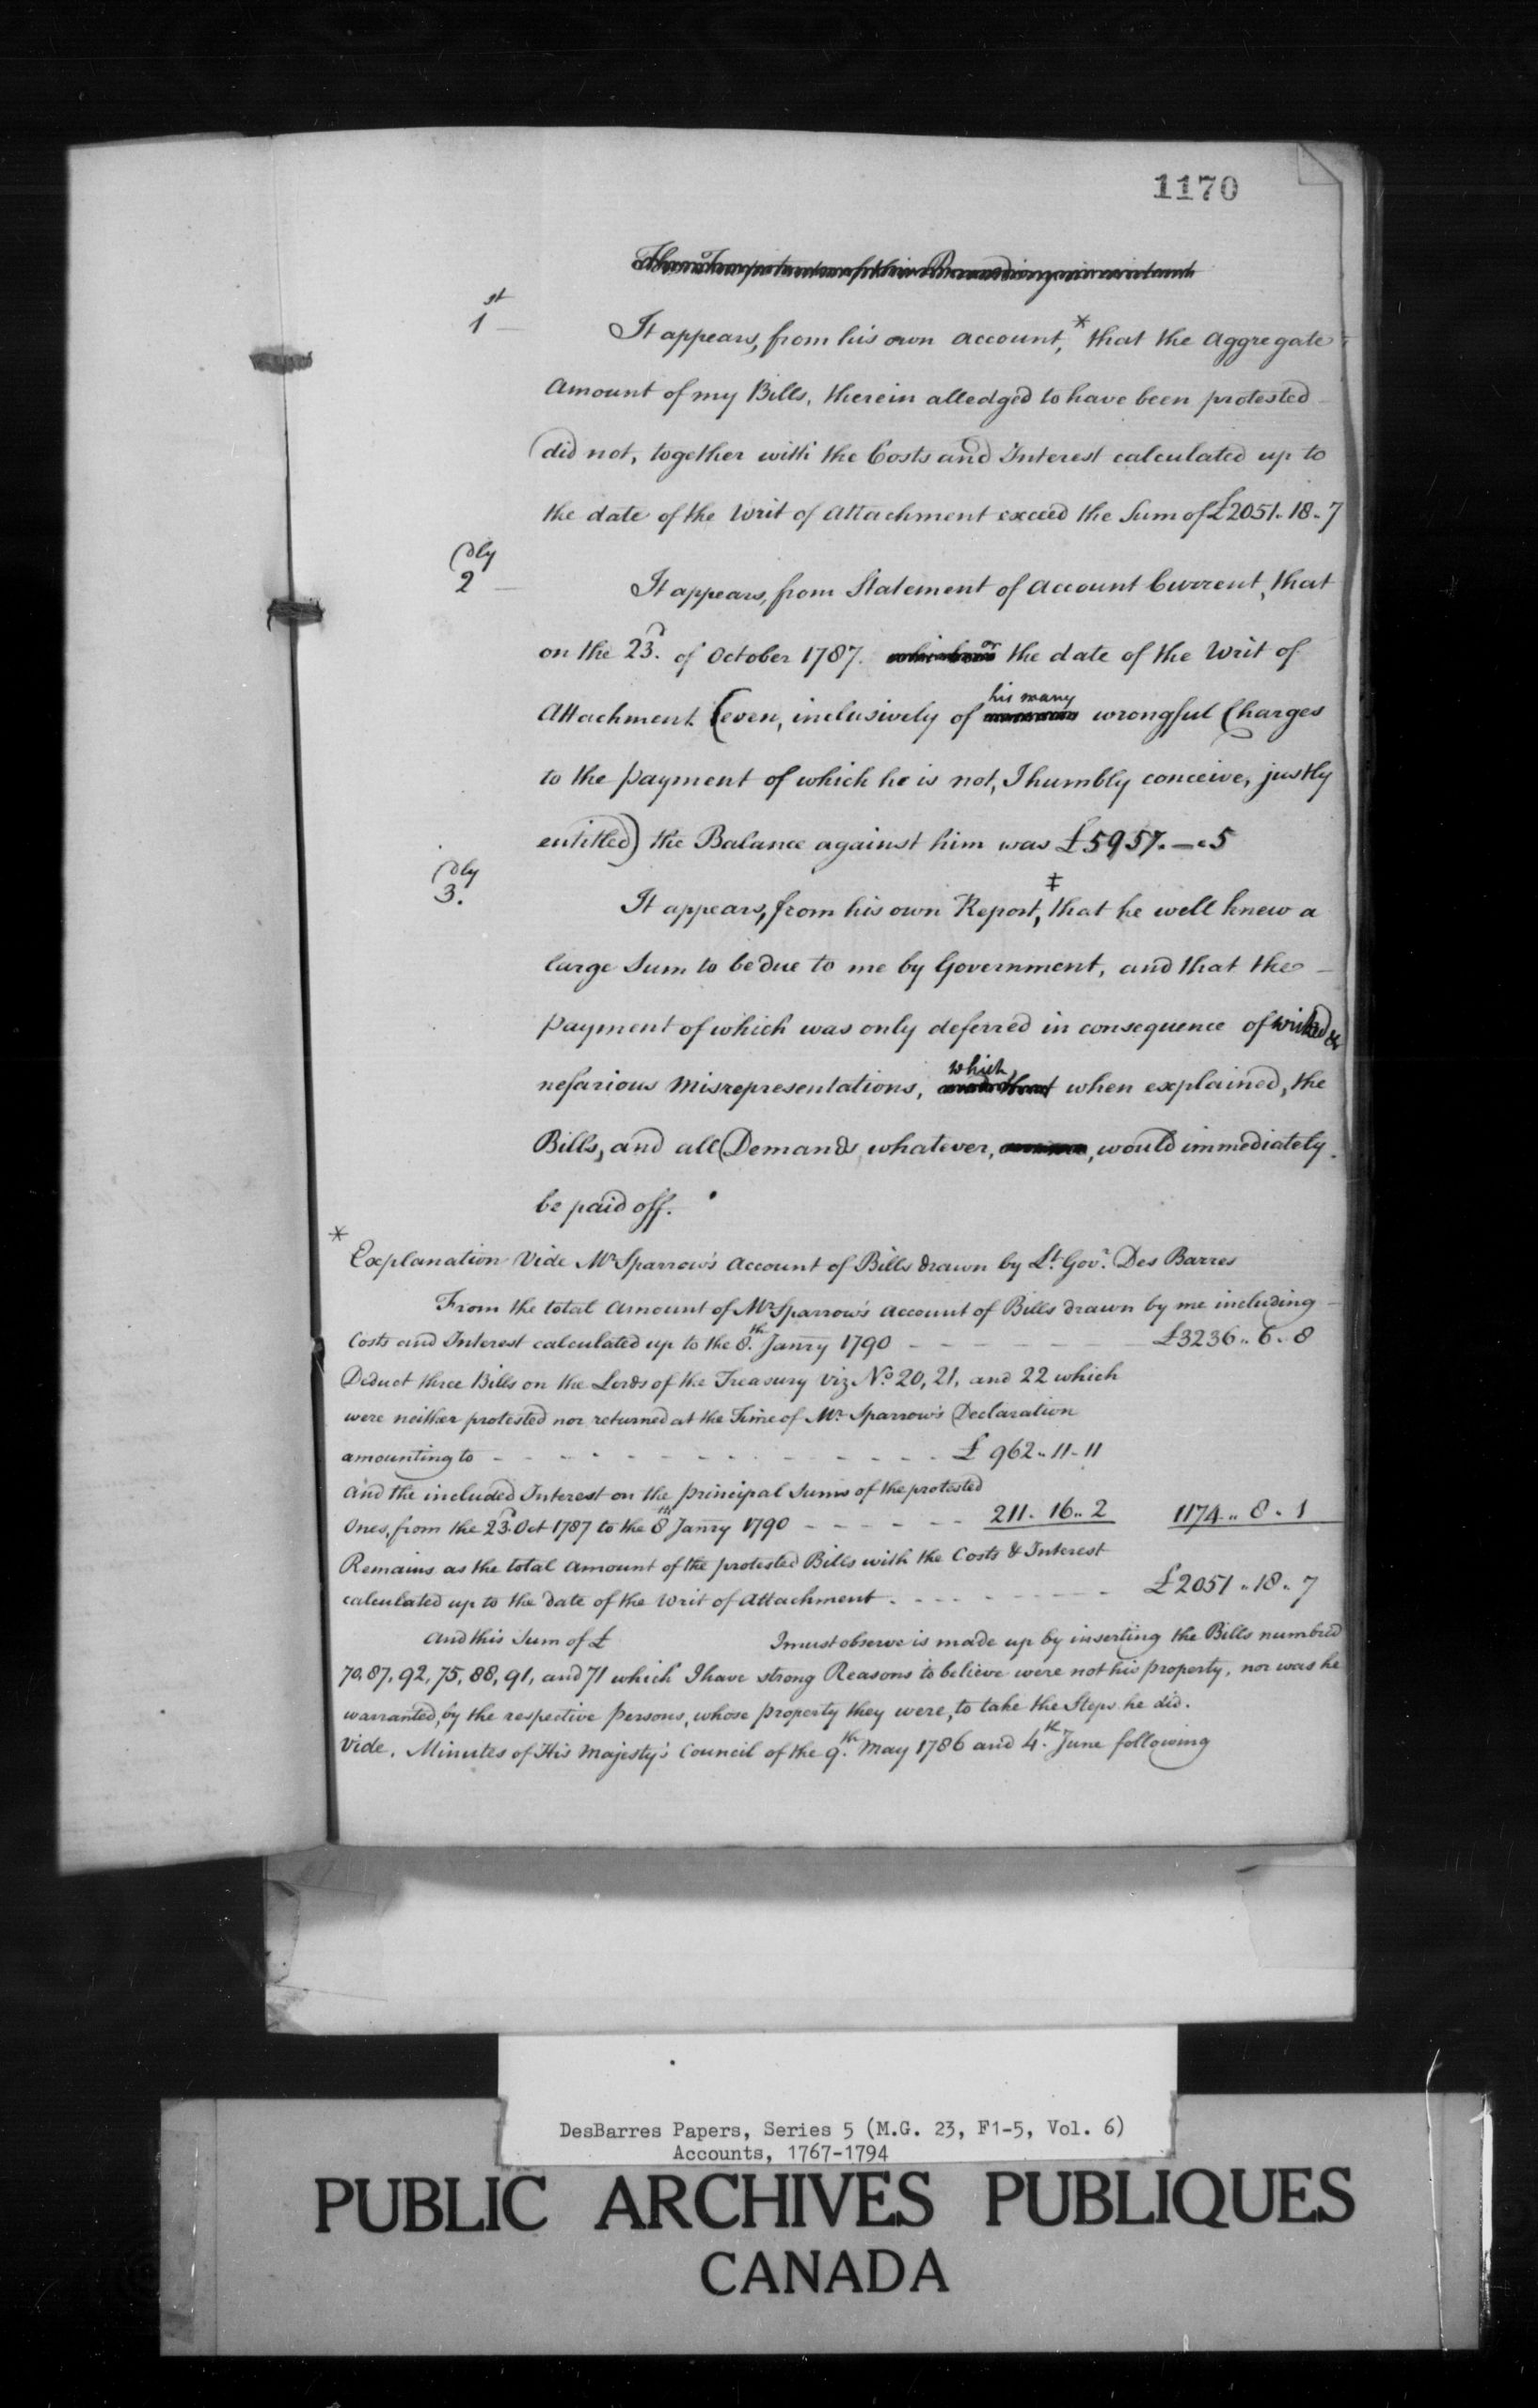 1170
1st
It appears, from his own account,* that the aggregate
Amount of my Bills, therein alledged to have been protested
did not, together with the Costs and Interest calculated up to
the date of the Writ of Attachment exceed the Sum of £2051.18.7
2dly
It appears, from Statement of Account Current, that
on the 23d. of October 1787. or the date of the Writ of
Attachment (even, inclusively of his many wrongful Charges
to the payment of which he is not, I humbly conceive, justly
entitled) the Balance against him was £5957.—.5
3dly.
It appears, from his own Report,‡ that he well knew a
large Sum to be due to me by Government, and that the
payment of which was only deferred in consequence of wicked &
nefarious Misrepresentations, which when explained, the
Bills, and all Demands whatever, , would immediately
be paid off.
* Explanation Vide Mr. Sparrow's account of Bills drawn by Lt. Govr. Des Barres
From the total Amount of Mr. Sparrow's Account of Bills drawn by me including
Costs and Interest calculated up to the 8th. Janry 1790 - - - - - £3236..6.8
Deduct three Bills on the Lords of the Treasury Viz No. 20, 21, and 22 which
were neither protested nor returned at the Time of Mr. Sparrow's Declaration
amounting to - - - - - - - - - - - - £962..11-11
and the included Interest on the principal Sums of the protested
Ones, from the 23d. Oct 1787 to the 8th Janry 1790 - - - - - 211.16..2 1174..8.1
Remains as the total Amount of the protested Bills with the Costs & Interest
calculated up to the date of the Writ of Attachment - - - - - - £2051..18..7
And this Sum of £ I must observe is made up by inserting the Bills numbred
70, 87, 92, 75, 88, 91, and 71 which I have strong Reasons to believe were not his property, nor was he
warranted, by the respective Persons, whose property they were, to take the Steps he did.
Vide, Minutes of His Majesty's Council of the 9th. May 1786 and 4th. June following
DesBarres Papers, Series 5 (M.G. 23, F1-5, Vol. 6)
Accounts, 1767-1794
PUBLIC ARCHIVES PUBLIQUES
CANADA